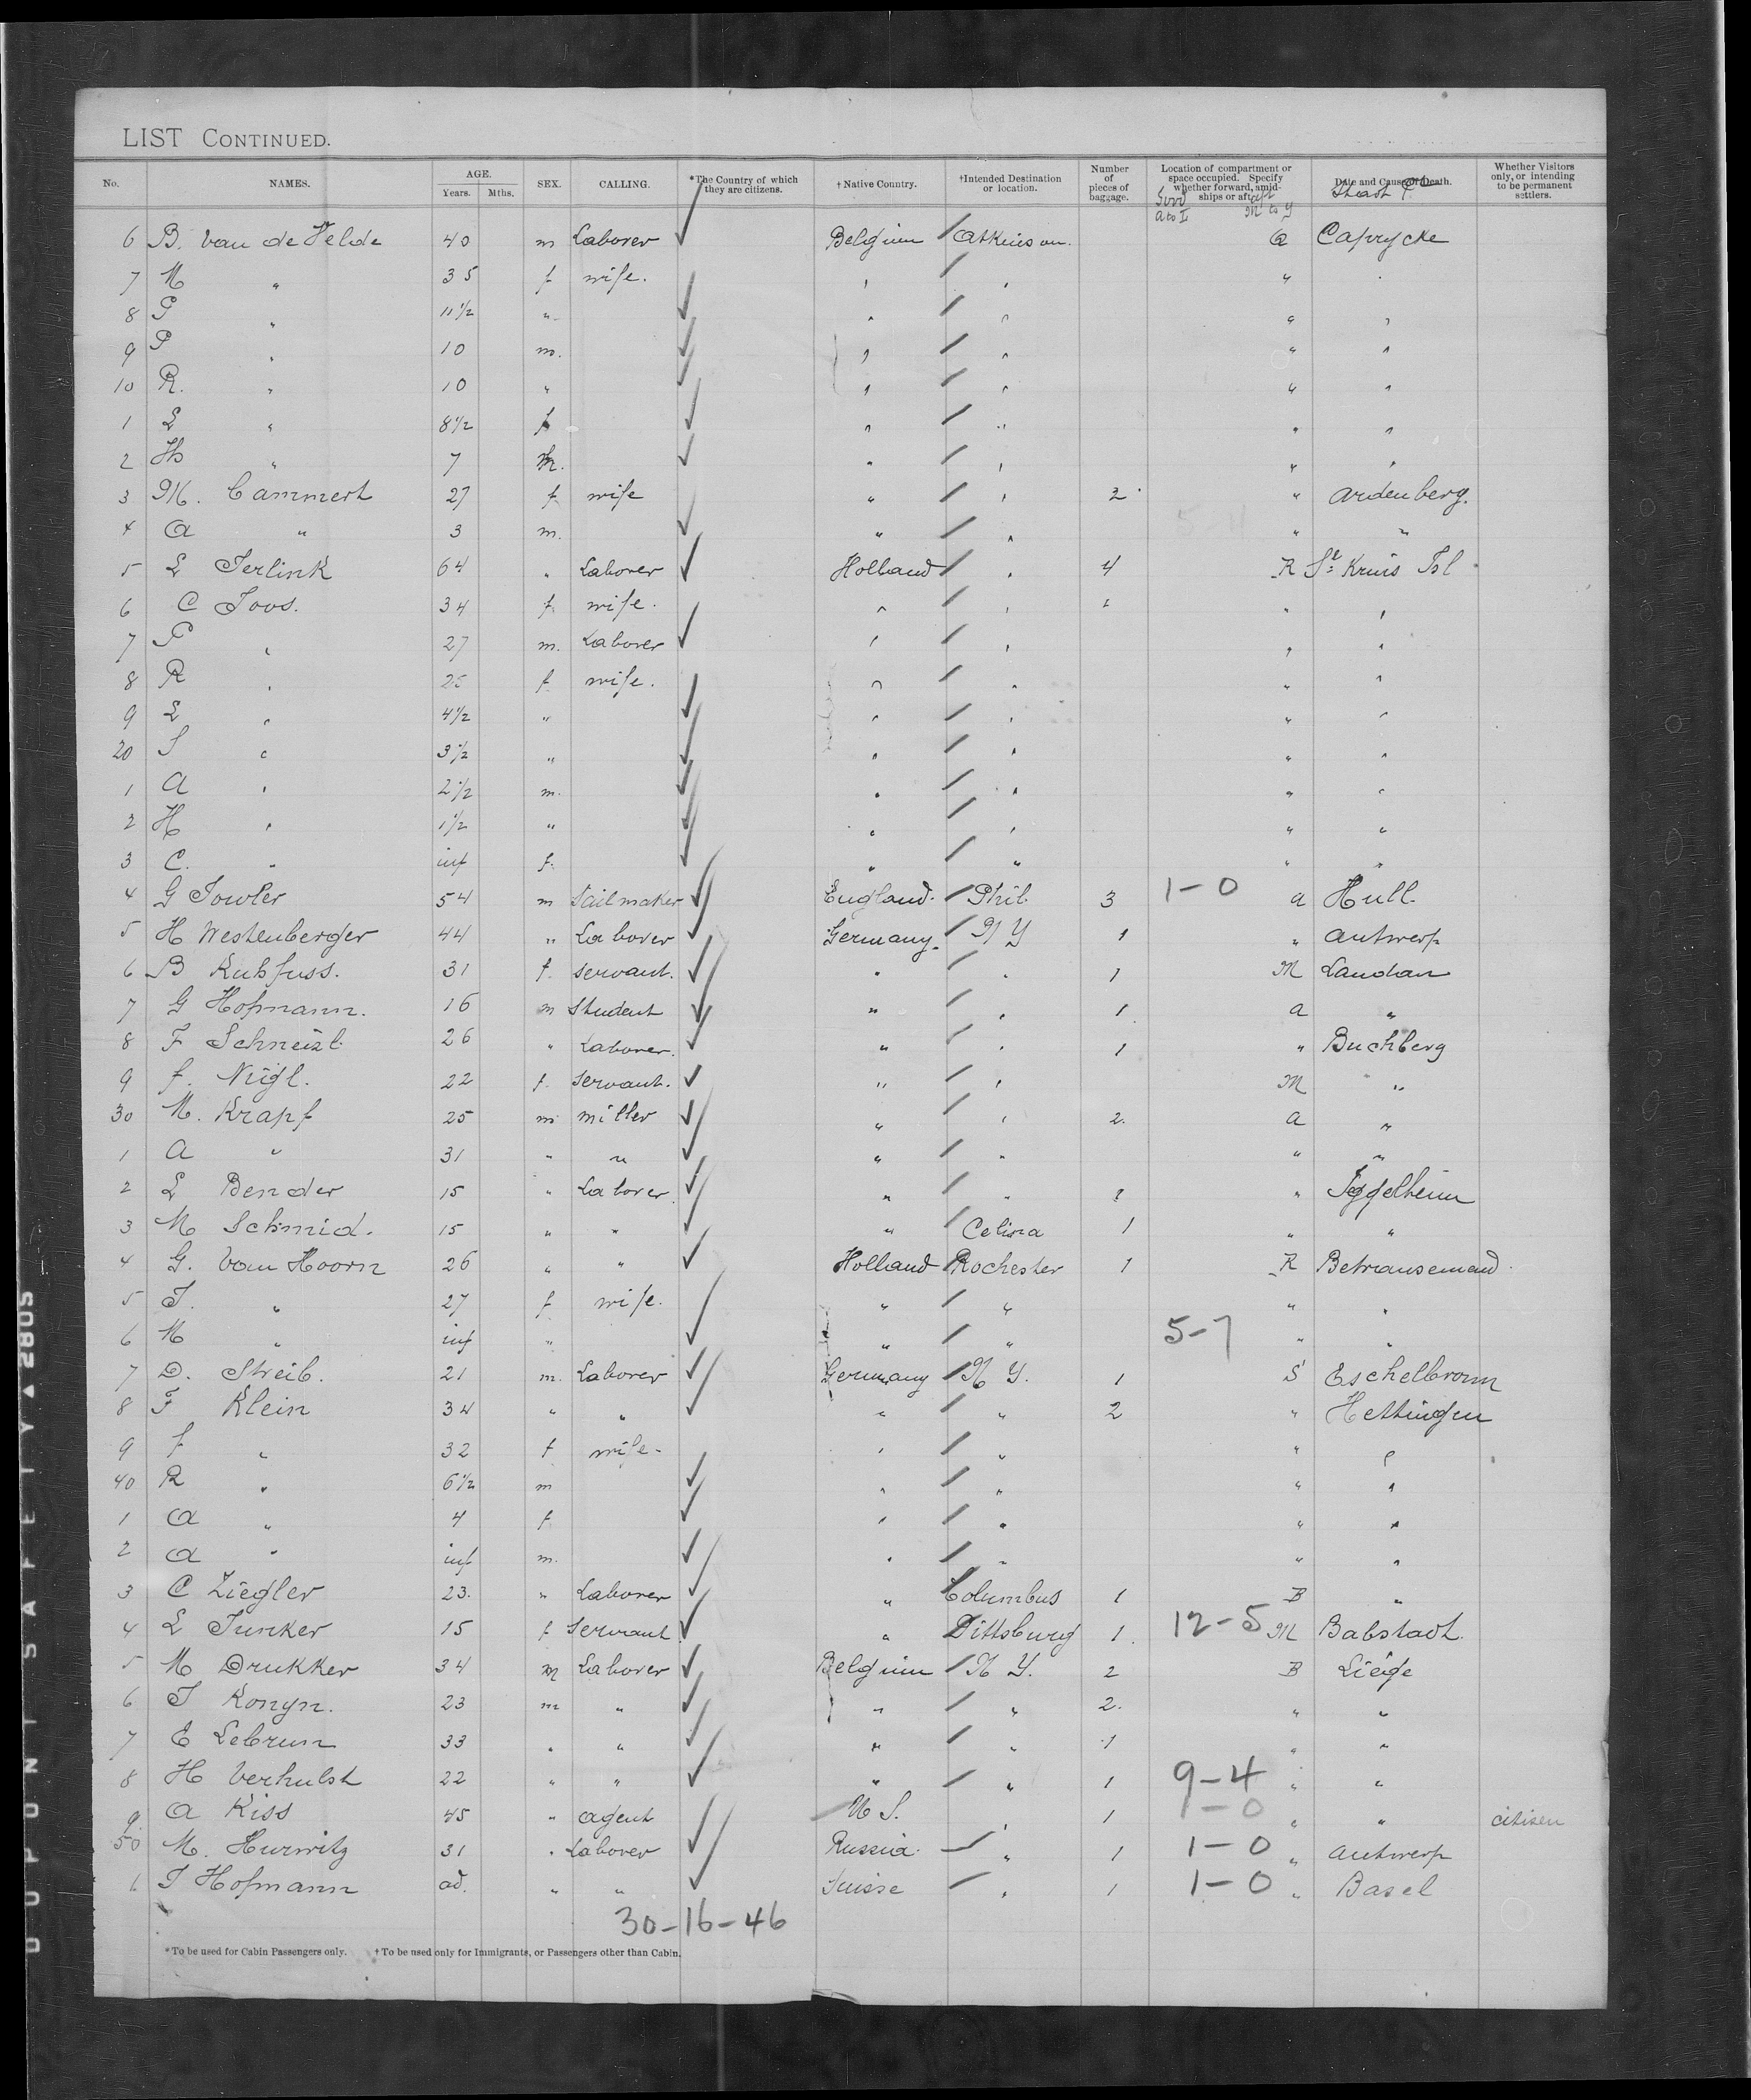 LIST CONTINUED.
No. NAMES. AGE. Years. Mths. SEX. CALLING. *The Country of which they are citizens. † Native Country. †Intended Destination or location. Number of pieces of baggage. Location of compartment or space occupied. Specify whether forward, amidships or aft. Date and Cause of Death. Whether Visitors only, or intending to be permanent settlers.
A to L M to Y
6 B. van de Velde 40 m Laborer Belgium Atkinson. Q Caprycke
7 M " 35 f wife. " " "
8 P " 11½ " " " " "
9 P " 10 m. " " " "
10 R. " 10 " " " " "
1 L " 8½ f " " " "
2 Th " 7 m. " " " "
3 M. Cammert 27 f wife " " 2 " Ardenberg.
4 A " 3 m. " " " "
5 L Terlink 64 " Laborer Holland " 4 R St Kruis Isl
6 C Joos. 34 f. wife. " " " "
7 P " 27 m. Laborer " " " "
8 R " 25 f. wife. " " " "
9 L " 4½ " " " " "
20 S " 3½ " " " " "
1 A " 2½ m. " " " "
2 H " 1½ " " " " "
3 C. " inf f. " " " "
4 G Towler 54 m Sailmaker England. Phil 3 1-0 a Hull
5 H Westenberger 44 " Laborer Germany. N Y 1 " Antwerp
6 B Kuhfuss. 31 f. servant. " " 1 M Landau
7 G Hofmann. 16 m Student " " 1 a "
8 F Schneizl 26 " Laborer. " " 1 " Buchberg
9 f. Nigl. 22 f. Servant. " " M "
30 M. Krapf 25 m miller " " 2. a "
1 A " 31 " " " " " "
2 L Bender 15 " Laborer " " " Iggelheim
3 M Schmid. 15 " " " Celina 1 " "
4 G. van Hoorn 26 " " Holland Rochester 1 R
5 J. " 27 f wife. " " " "
6 M " inf " " " 5-7 " "
7 D. Streib. 21 m. Laborer Germany N Y. 1 S Eschelbronn
8 F Klein 34 " " " " 2 " Hettingen
9 f " 32 f wife- " " " "
40 R " 6½ m " " " "
1 A " 4 f " " " "
2 A " inf m. " " " "
3 C Ziegler 23. " Laborer " Columbus 1 B "
4 L Junker 15 f Servant " Pittsburg 1. 12-5 M Babstadt.
5 M Drukker 34 m Laborer Belgium N Y. 2 B Liége
6 J Konyn. 23 m " " " 2. " "
7 E Lebrun 33 " " " " 1 " "
8 H Verhulst 22 " " " " 1 9-4 " "
9 A Kiss 45 " agent U S. " 1 1-0 " " citisen
50 M. Hurwitz 31 " Laborer Russia. " 1 1-0 " Antwerp
1 J Hofmann ad. " " Suisse " 1 1-0 " Basel
30-16-46
*To be used for Cabin Passengers only. †To be used only for Immigrants, or Passengers other than Cabin.
DUPONT SAFETY ▲ 2805